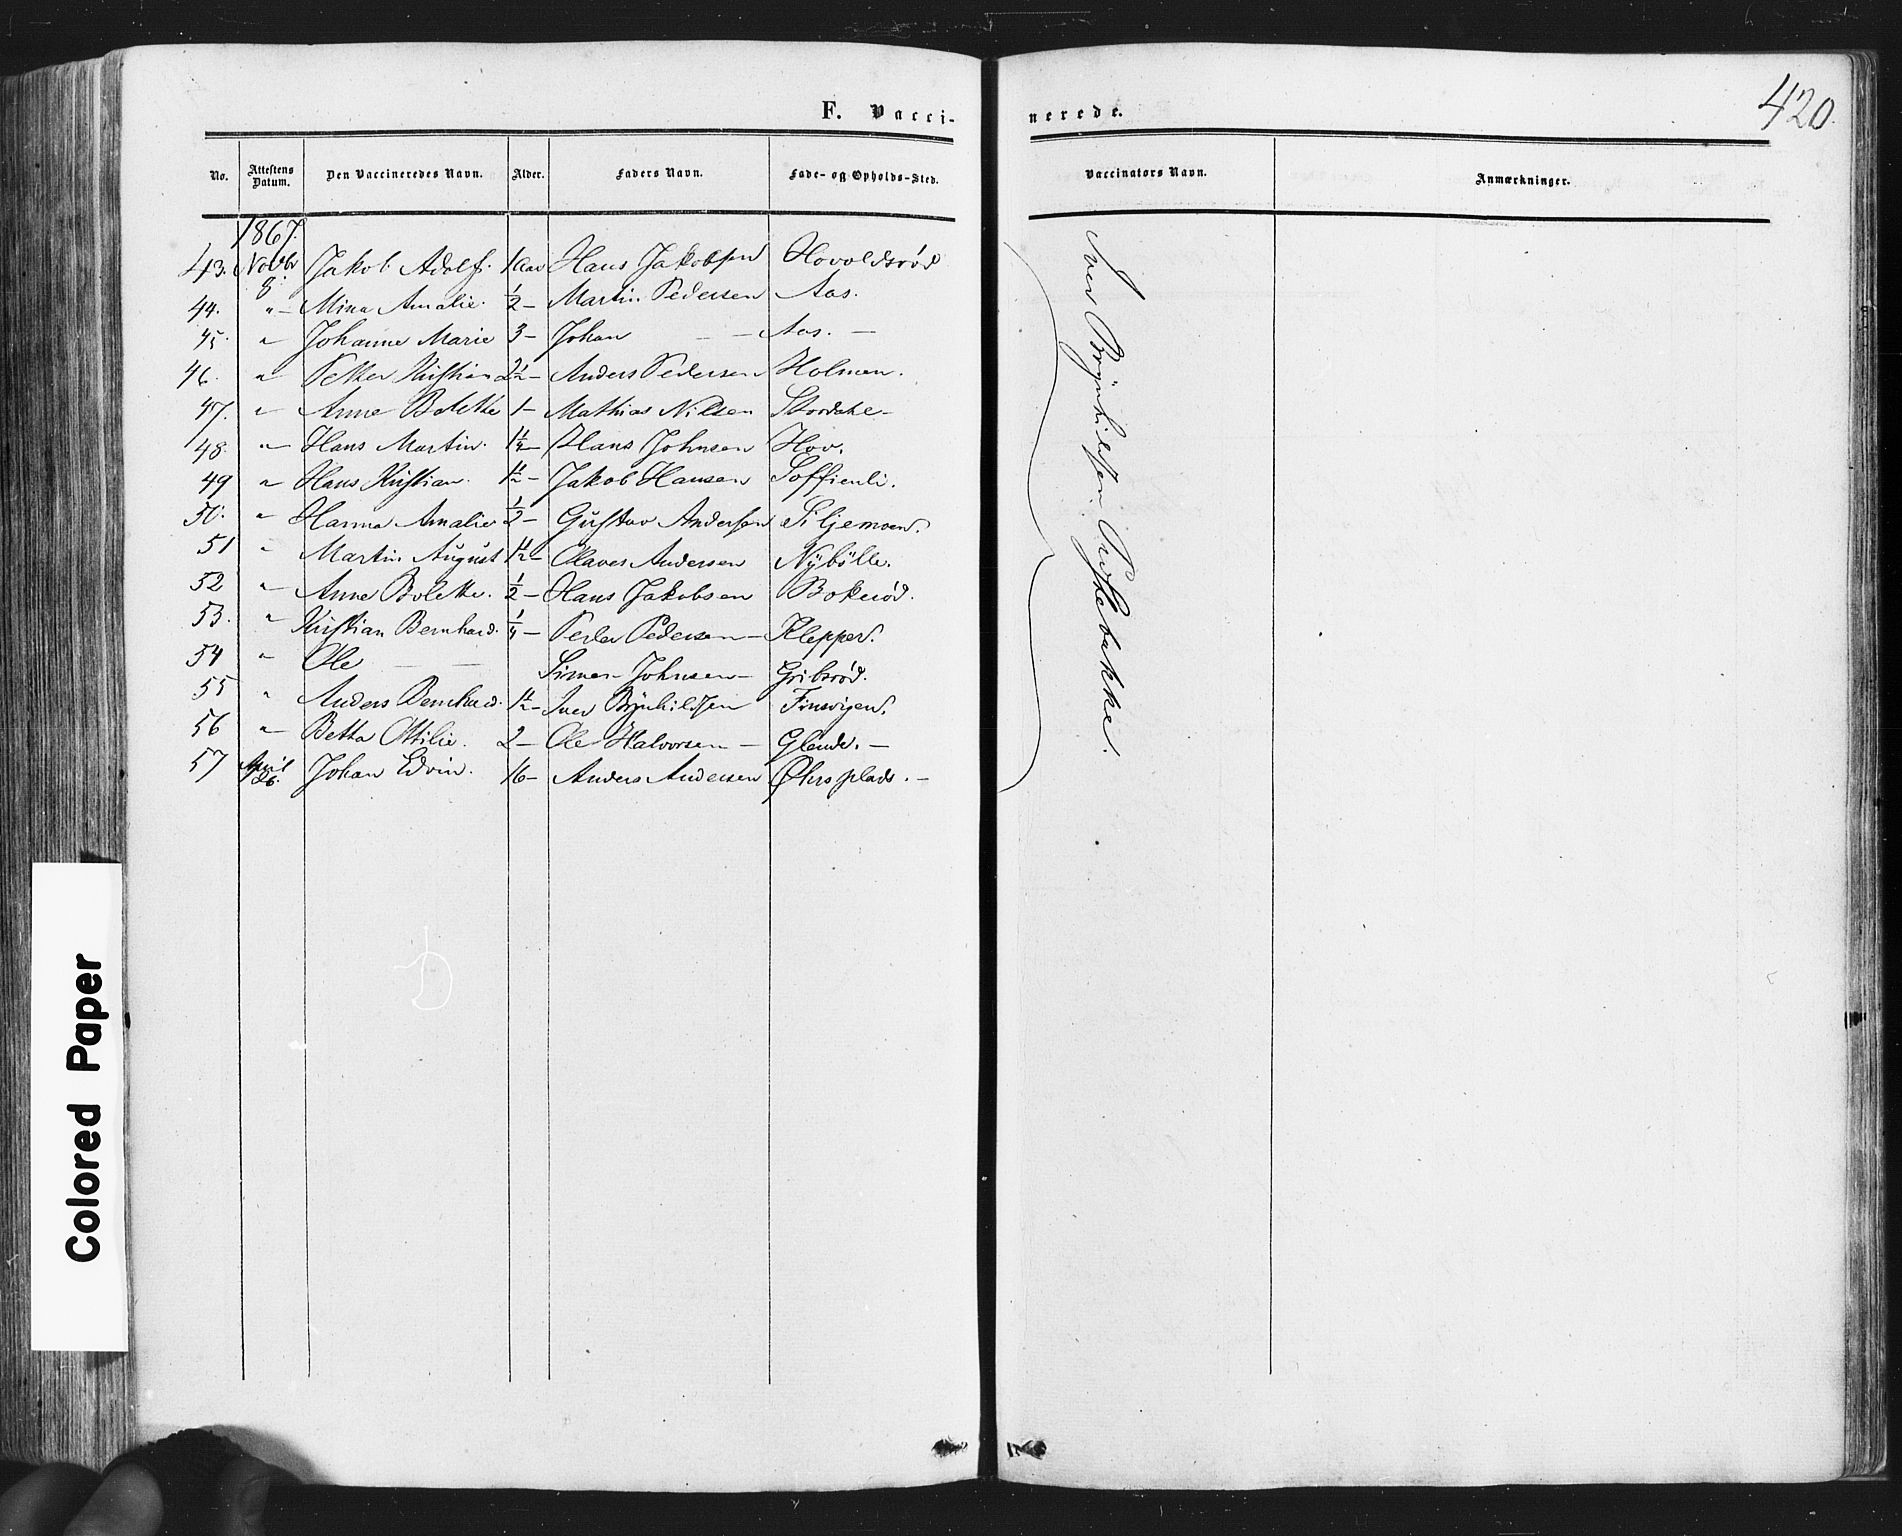 420.
F. Vacci-
nerede.
No. Attestens Datum. Den Vaccineredes Navn. Alder. Faders Navn. Føde- og Opholds-Sted. Vaccinators Navn. Anmærkninger.
1867.
43. Novbr 8. Jakob Adolf. 1 Aar Hans Jakobsen Hovoldsrød
44. " – Mina Amalie. ½ – Martin Pedersen Aas.
45. " Johanne Marie 3 – Johan — — Aas. —
46. " Petter Kristian 2½ – Anders Pedersen Holmen.
47. " Anne Bolette 1 – Mathias Nilsen
48. " Hans Martin. 1¼ – Hans Johnsen Hov.
49 " Hans Kristian. 1½ – Jakob Hansen Soffienli.
50. " Hanna Amalie ½ – Gustav Andersen Siljemoen.
51 " Martin August 1½ – Olaves Andersen Nybölle.
52 " Anne Bolette. ½ – Hans Jakobsen Bokerød.
53. " Kristian Bernhard. ¼ – Peder Pedersen – Klepper.
54 " Ole — — Simen Johnsen – Gribsrød.
55 " Anders Bernhard. 1½ – Iver Bynhildsen
56 " Betha Ottilie. 2 – Ole Halvorsen – Glende. –
57 April 26. Johan Edvin. 16 – Anders Andersen Øhrsplads. –
Iver Brynhildsen Prestebakke.
Colored Paper